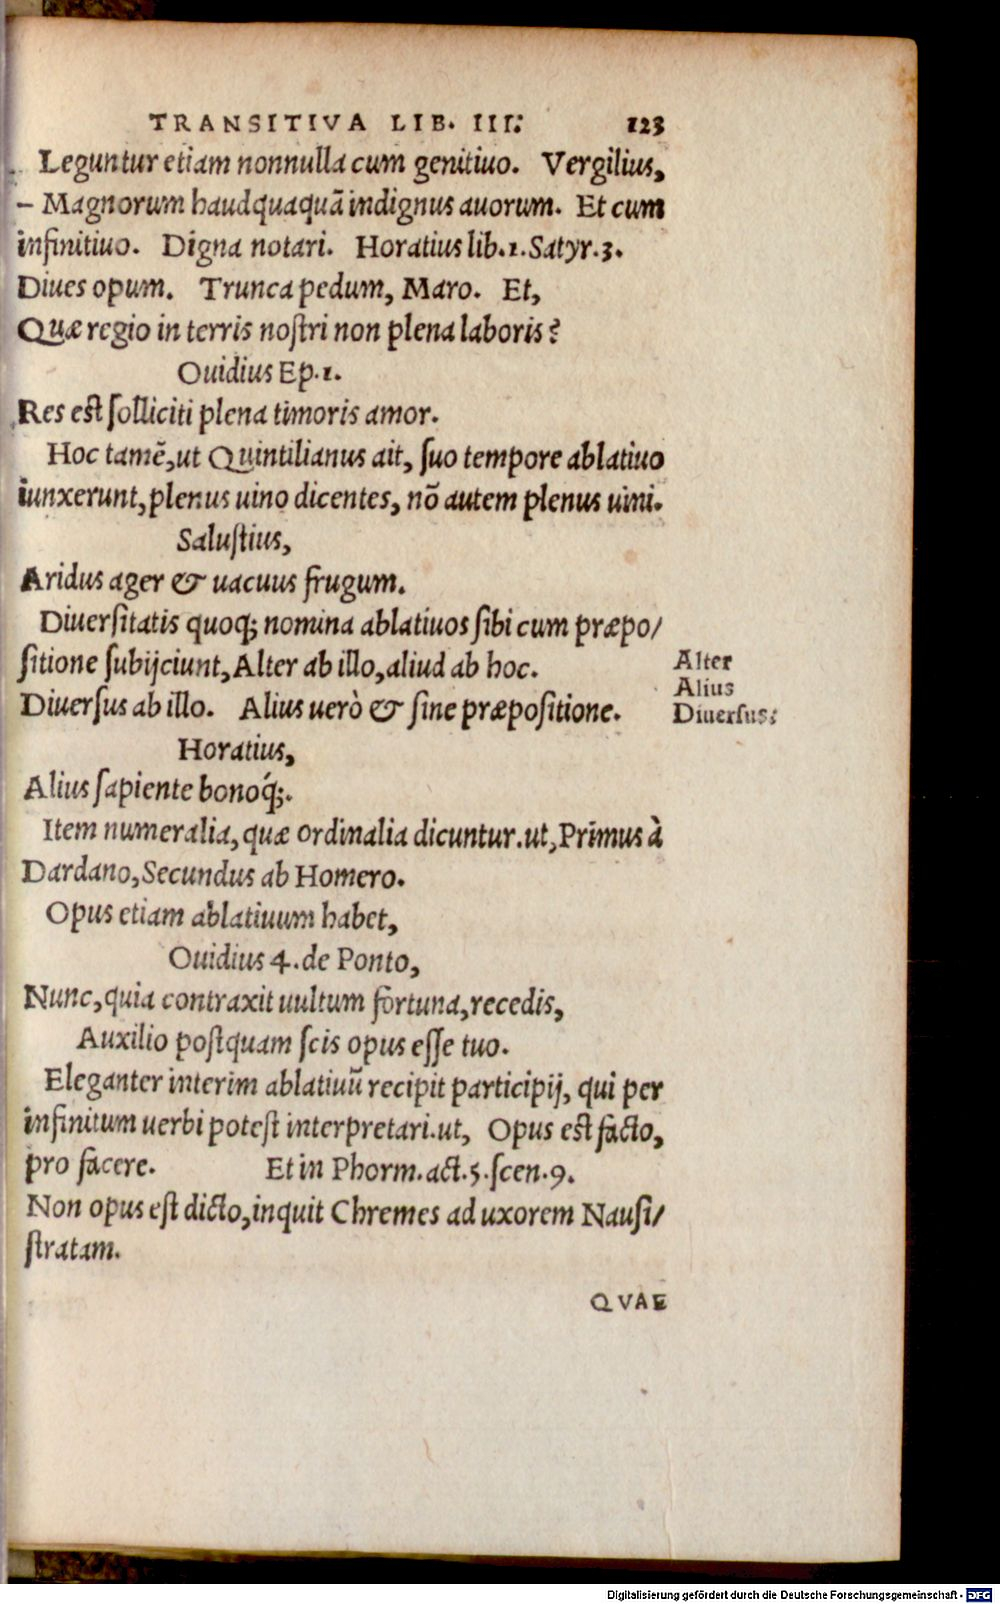 TRANSITIVA LIB. III. 123
Leguntur etiam nonnulla cum genitiuo. Vergilius,
– Magnorum haudquaquā indignus auorum. Et cum
infinitiuo. Digna notari. Horatius lib.1.Satyr.3.
Diues opum. Trunca pedum, Maro. Et,
Quæ regio in terris noſtri non plena laboris?
Ouidius Ep.1.
Res eſt ſolliciti plena timoris amor.
Hoc tamē,ut Quintilianus ait, ſuo tempore ablatiuo
iunxerunt,plenus uino dicentes, nō autem plenus uini.
Saluſtius,
Aridus ager & uacuus frugum.
Diuerſitatis quoq; nomina ablatiuos ſibi cum præpo/
ſitione ſubijciunt,Alter ab illo,aliud ab hoc.
Alter
Alius
Diuerſus ab illo. Alius uerò & ſine præpoſitione.
Diuerſus:
Horatius,
Alius ſapiente bonoq́;.
Item numeralia,quæ ordinalia dicuntur.ut,Primus à
Dardano,Secundus ab Homero.
Opus etiam ablatiuum habet,
Ouidius 4.de Ponto,
Nunc,quia contraxit uultum fortuna,recedis,
Auxilio poſtquam ſcis opus eſſe tuo.
Eleganter interim ablatiuū recipit participij, qui per
infinitum uerbi poteſt interpretari.ut, Opus eſt facto,
pro facere. Et in Phorm.act.5.ſcen.9.
Non opus eſt dicto,inquit Chremes ad uxorem Nauſi/
ſtratam.
QVAE
Digitalisierung gefördert durch die Deutsche Forschungsgemeinschaft - DFG